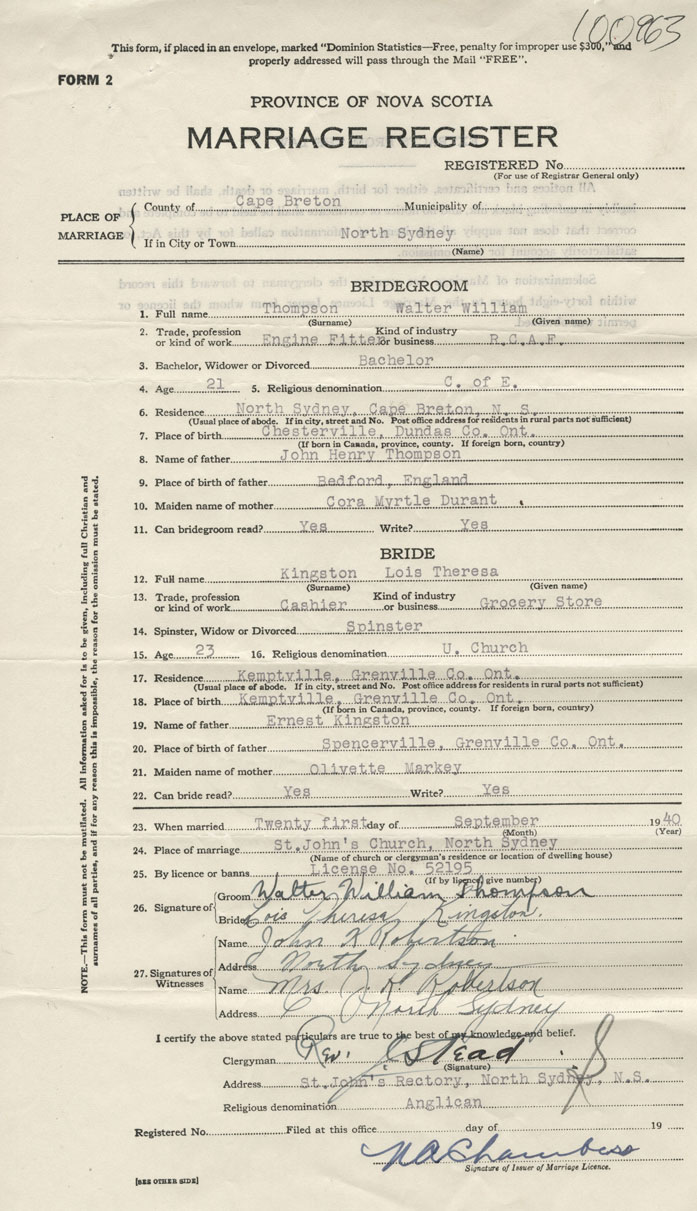 100963
This form, if placed in an envelope, marked "Dominion Statistics—Free, penalty for improper use $300," and
properly addressed will pass through the Mail "FREE".
FORM 2
PROVINCE OF NOVA SCOTIA
MARRIAGE REGISTER
REGISTERED No.
(For use of Registrar General only)
PLACE OF MARRIAGE
County of Cape Breton Municipality of
If in City or Town North Sydney
(Name)
BRIDEGROOM
1. Full name Thompson Walter William
(Surname) (Given name)
2. Trade, profession or kind of work Engine Fitter Kind of industry or business R.C.A.F.
3. Bachelor, Widower or Divorced Bachelor
4. Age 21 5. Religious denomination C. of E.
6. Residence North Sydney, Cape Breton, N. S.
(Usual place of abode. If in city, street and No. Post office address for residents in rural parts not sufficient)
7. Place of birth Chesterville, Dundas Co. Ont.
(If born in Canada, province, county. If foreign born, country)
8. Name of father John Henry Thompson
9. Place of birth of father Bedford, England
10. Maiden name of mother Cora Myrtle Durant
11. Can bridegroom read? Yes Write? Yes
BRIDE
12. Full name Kingston Lois Theresa
(Surname) (Given name)
13. Trade, profession or kind of work Cashier Kind of industry or business Grocery Store
14. Spinster, Widow or Divorced Spinster
15. Age 23 16. Religious denomination U. Church
17. Residence Kemptville, Grenville Co. Ont.
(Usual place of abode. If in city, street and No. Post office address for residents in rural parts not sufficient)
18. Place of birth Kemptville, Grenville Co. Ont.
(If born in Canada, province, county. If foreign born, country)
19. Name of father Ernest Kingston
20. Place of birth of father Spencerville, Grenville Co. Ont.
21. Maiden name of mother Olivette Markey
22. Can bride read? Yes Write? Yes
23. When married Twenty first day of September 1940
(Month) (Year)
24. Place of marriage St.John's Church, North Sydney
(Name of church or clergyman's residence or location of dwelling house)
25. By licence or banns License No. 52195
(If by licence give number)
26. Signature of
Groom Walter William Thompson
Bride Lois Theresa Kingston.
27. Signatures of Witnesses
Name John K Robertson
Address North Sydney
Name Mrs. J. K. Robertson
Address North Sydney
I certify the above stated particulars are true to the best of my knowledge and belief.
Clergyman Rev. J. Stead
(Signature)
Address St.John's Rectory, North Sydney, N.S.
Religious denomination Anglican
Registered No. Filed at this office day of 19
N A Chambers
Signature of Issuer of Marriage Licence.
[SEE OTHER SIDE]
NOTE.—This form must not be mutilated. All information asked for is to be given, including full Christian and
surnames of all parties, and if for any reason this is impossible, the reason for the omission must be stated.